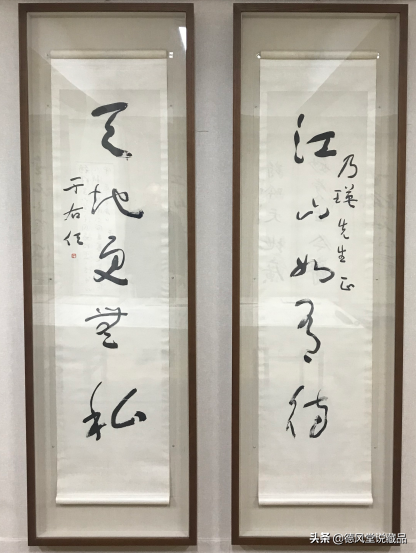 江山如有待
乃瑛先生正
天地更無私
于右任
头条 @德风堂说藏品